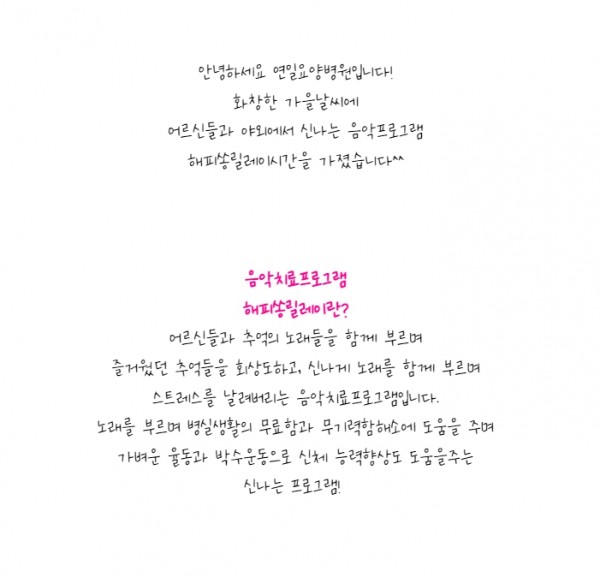 안녕하세요 연일요양병원입니다!
화창한 가을날씨에
어르신들과 야외에서 신나는 음악프로그램
해피쏭릴레이시간을 가졌습니다^^
음악치료프로그램
해피쏭릴레이란?
어르신들과 추억의 노래들을 함께 부르며
즐거웠던 추억들을 회상도하고, 신나게 노래를 함께 부르며
스트레스를 날려버리는 음악치료프로그램입니다.
노래를 부르며 병실생활의 무료함과 무기력함해소에 도움을 주며
가벼운 율동과 박수운동으로 신체 능력향상도 도움을주는
신나는 프로그램!